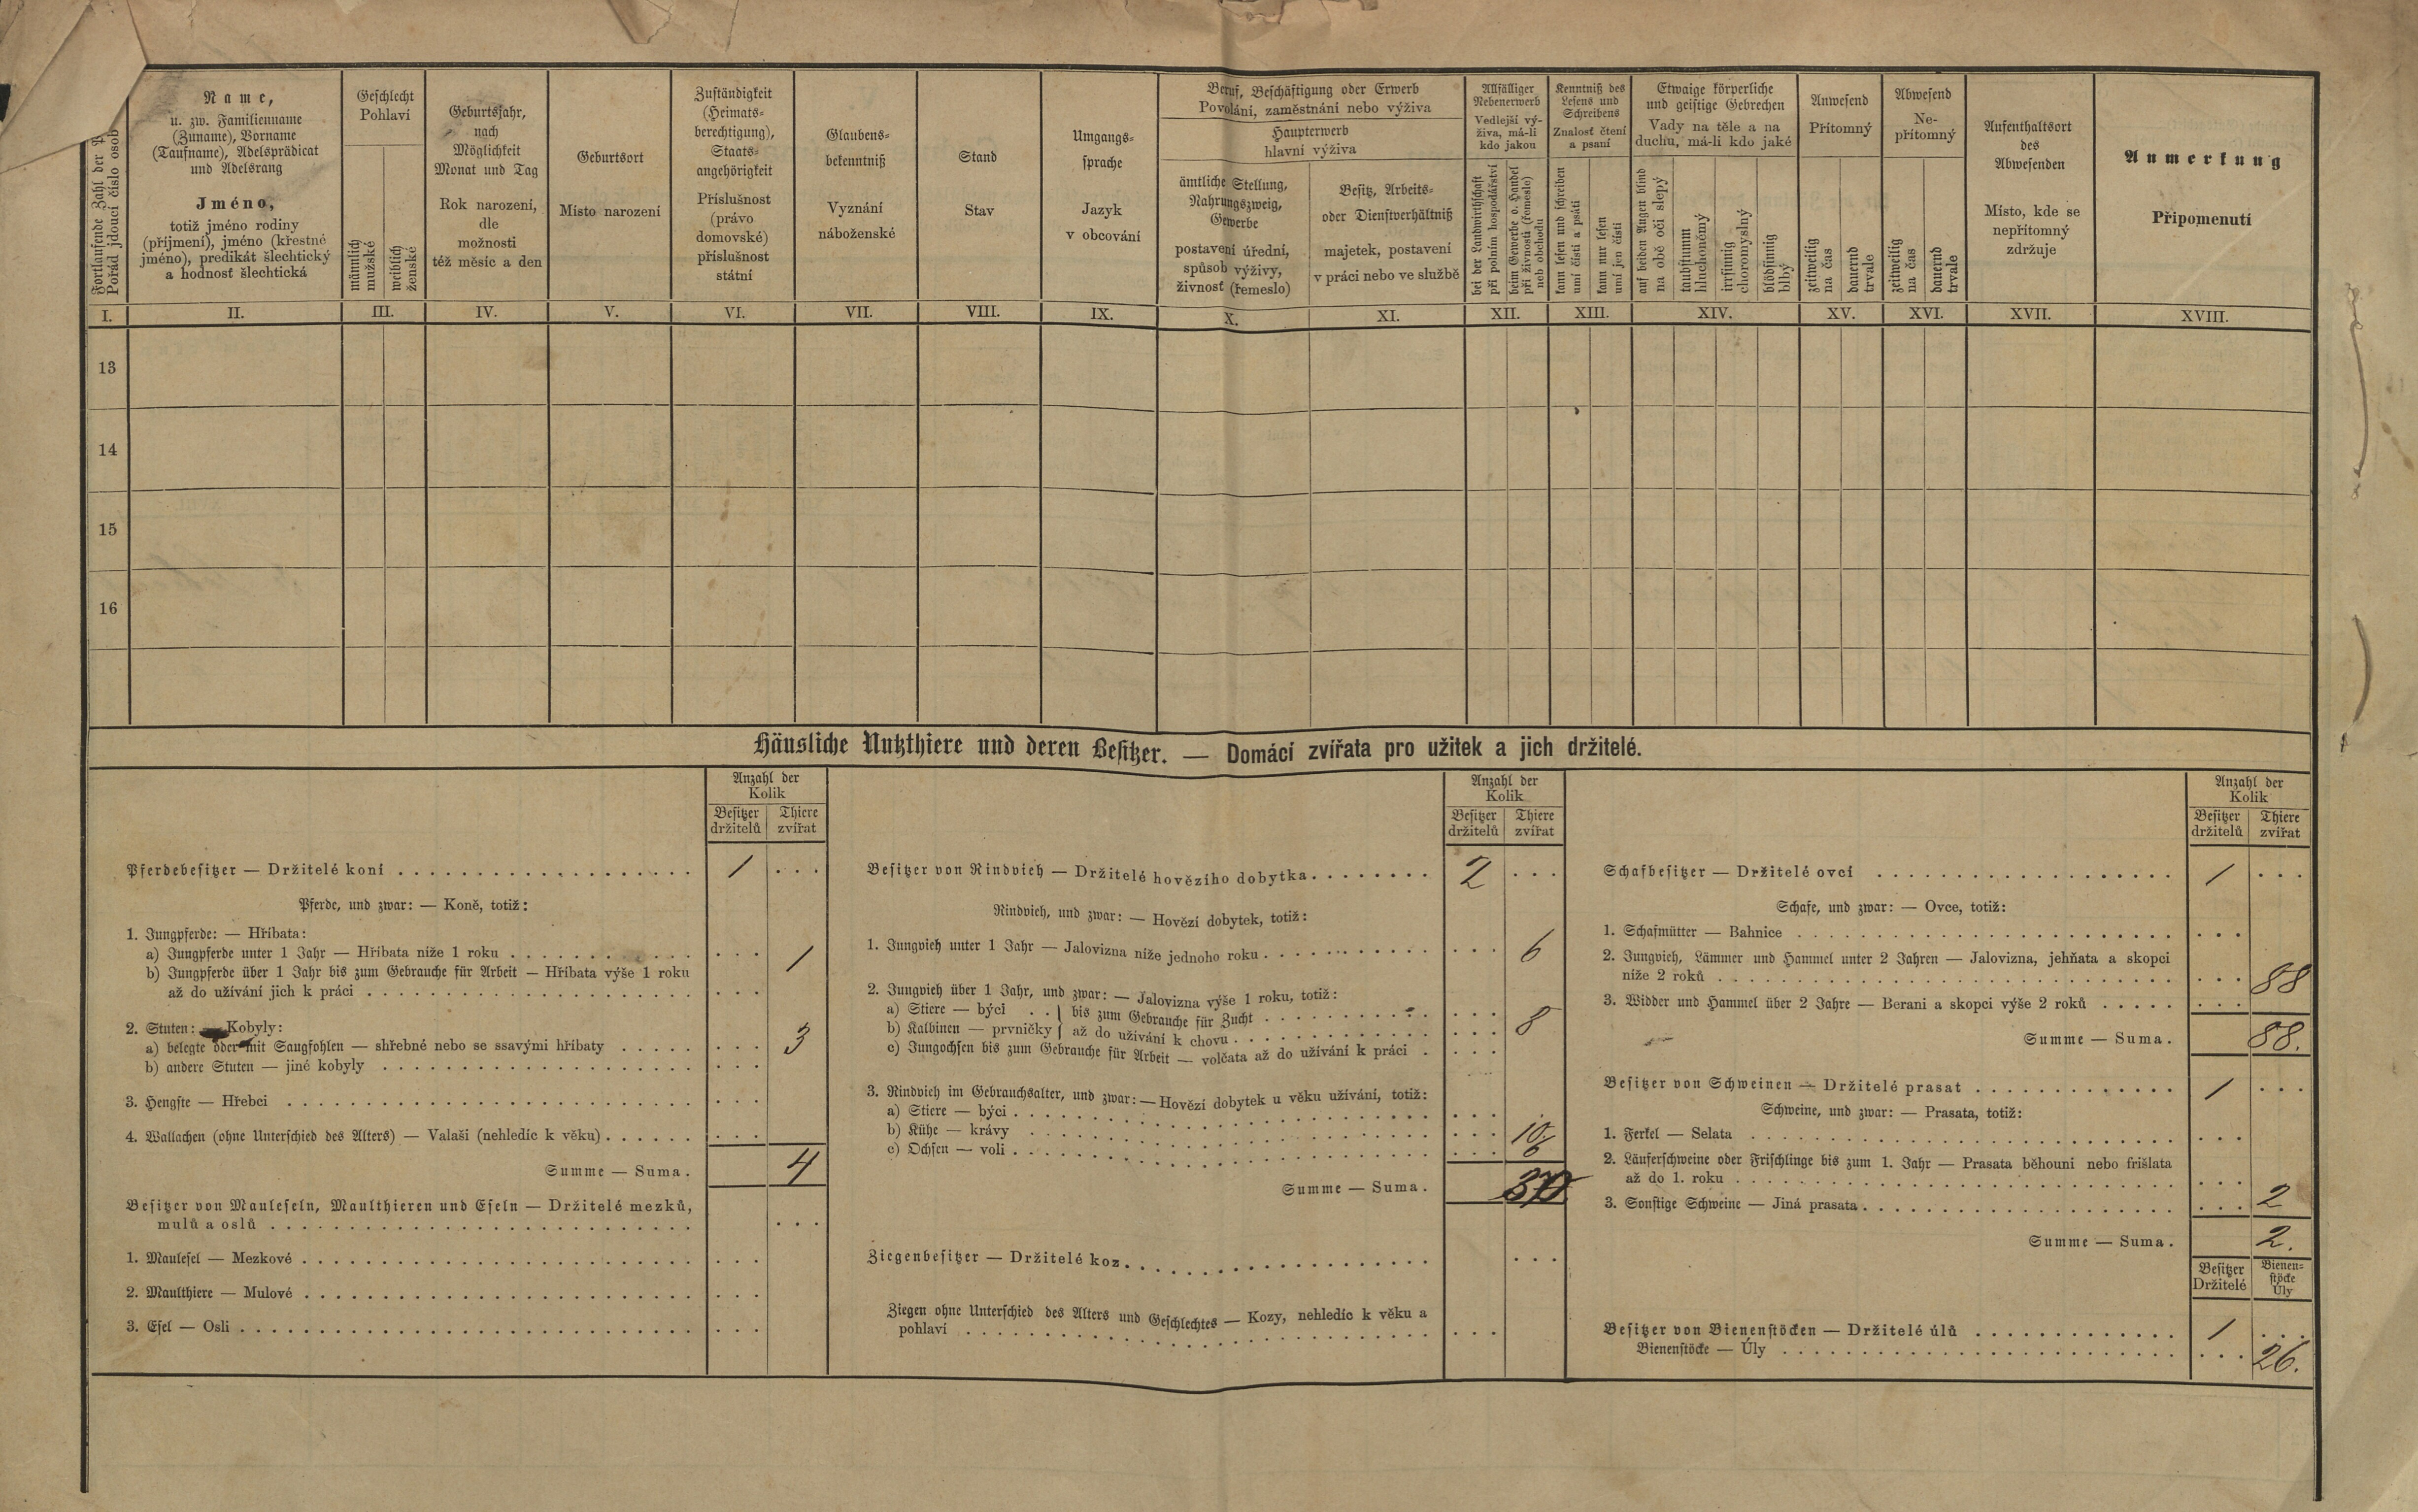 Fortlaufende Zahl der
Pořád jdoucí číslo osob
Name,
u. zw. Familienname
(Zuname), Vorname
(Taufname), Adelsprädicat
und Adelsrang
Jméno,
totiž jméno rodiny
(příjmení), jméno (křestné
jméno), predikát šlechtický
a hodnosť šlechtická
Geschlecht
Pohlaví
männlich
mužské
weiblich
ženské
Geburtsjahr,
nach
Möglichkeit
Monat und Tag
Rok narození,
dle
možnosti
též měsíc a den
Geburtsort
Místo narození
Zuständigkeit
(Heimats-
berechtigung),
Staats-
angehörigkeit
Příslušnost
(právo
domovské)
příslušnost
státní
Glaubens-
bekenntniß
Vyznání
náboženské
Stand
Stav
Umgangs-
sprache
Jazyk
v obcování
Beruf, Beschäftigung oder Erwerb
Povolání, zaměstnání nebo výživa
Haupterwerb
hlavní výživa
ämtliche Stellung,
Nahrungszweig,
Gewerbe
postavení úřední,
spůsob výživy,
živnosť (řemeslo)
Besitz, Arbeits-
oder Dienstverhältniß
majetek, postavení
v práci nebo ve službě
Allfälliger
Nebenerwerb
Vedlejší vý-
živa, má-li
kdo jakou
bei der Landwirthschaft
při polním hospodářství
beim Gewerbe o. Handel
při živnosti (řemesle)
neb obchodu
Kenntniß des
Lesens und
Schreibens
Znalosť čtení
a psaní
kann lesen und schreiben
umí čísti a psáti
kann nur lesen
umí jen čísti
Etwaige körperliche
und geistige Gebrechen
Vady na těle a na
duchu, má-li kdo jaké
auf beiden Augen blind
na obě oči slepý
taubstumm
hluchoněmý
irrsinnig
choromyslný
blödsinnig
blbý
Anwesend
Přítomný
zeitweilig
na čas
dauernd
trvale
Abwesend
Ne-
přítomný
zeitweilig
na čas
dauernd
trvale
Aufenthaltsort
des
Abwesenden
Místo, kde se
nepřítomný
zdržuje
Anmerkung
Připomenutí
I. II. III. IV. V. VI. VII. VIII. IX. X. XI. XII. XIII. XIV. XV. XVI. XVII. XVIII.
13
14
15
16
Häusliche Nutzthiere und deren Besitzer. — Domácí zvířata pro užitek a jich držitelé.
Anzahl der
Kolik
Besitzer Thiere
držitelů zvířat
Pferdebesitzer — Držitelé koní . . . 1
Pferde, und zwar: — Koně, totiž:
1. Jungpferde: — Hříbata:
a) Jungpferde unter 1 Jahr — Hříbata níže 1 roku . . . 1
b) Jungpferde über 1 Jahr bis zum Gebrauche für Arbeit — Hříbata výše 1 roku
až do užívání jich k práci . . .
2. Stuten: — Kobyly:
a) belegte oder mit Saugfohlen — shřebné nebo se ssavými hříbaty . . . 3
b) andere Stuten — jiné kobyly . . .
3. Hengste — Hřebci . . .
4. Wallachen (ohne Unterschied des Alters) — Valaši (nehledíc k věku) . . .
Summe — Suma. 4
Besitzer von Mauleseln, Maulthieren und Eseln — Držitelé mezků,
mulů a oslů . . .
1. Maulesel — Mezkové . . .
2. Maulthiere — Mulové . . .
3. Esel — Osli . . .
Anzahl der
Kolik
Besitzer Thiere
držitelů zvířat
Besitzer von Rindvieh — Držitelé hovězího dobytka . . . 2
Rindvieh, und zwar: — Hovězí dobytek, totiž:
1. Jungvieh unter 1 Jahr — Jalovizna níže jednoho roku . . . 6
2. Jungvieh über 1 Jahr, und zwar: — Jalovizna výše 1 roku, totiž:
a) Stiere — býci . . } bis zum Gebrauche für Zucht . . .
b) Kalbinen — prvničky } až do užívání k chovu . . . 8
c) Jungochsen bis zum Gebrauche für Arbeit — volčata až do užívání k práci . . .
3. Rindvieh im Gebrauchsalter, und zwar: — Hovězí dobytek u věku užívání, totiž:
a) Stiere — býci . . .
b) Kühe — krávy . . . 10
c) Ochsen — voli . . . 6
Summe — Suma.
Ziegenbesitzer — Držitelé koz . . .
Ziegen ohne Unterschied des Alters und Geschlechtes — Kozy, nehledíc k věku a
pohlaví . . .
Anzahl der
Kolik
Besitzer Thiere
držitelů zvířat
Schafbesitzer — Držitelé ovcí . . . 1
Schafe, und zwar: — Ovce, totiž:
1. Schafmütter — Bahnice . . .
2. Jungvieh, Lämmer und Hammel unter 2 Jahren — Jalovizna, jehňata a skopci
níže 2 roků . . . 88
3. Widder und Hammel über 2 Jahre — Berani a skopci výše 2 roků . . .
Summe — Suma. 88.
Besitzer von Schweinen — Držitelé prasat . . . 1
Schweine, und zwar: — Prasata, totiž:
1. Ferkel — Selata . . .
2. Läuferschweine oder Frischlinge bis zum 1. Jahr — Prasata běhouni nebo frišlata
až do 1. roku . . .
3. Sonstige Schweine — Jiná prasata . . . 2
Summe — Suma. 2.
Besitzer Bienen-
Držitelé stöcke
Úly
Besitzer von Bienenstöcken — Držitelé úlů . . . 1
Bienenstöcke — Úly . . . 26.